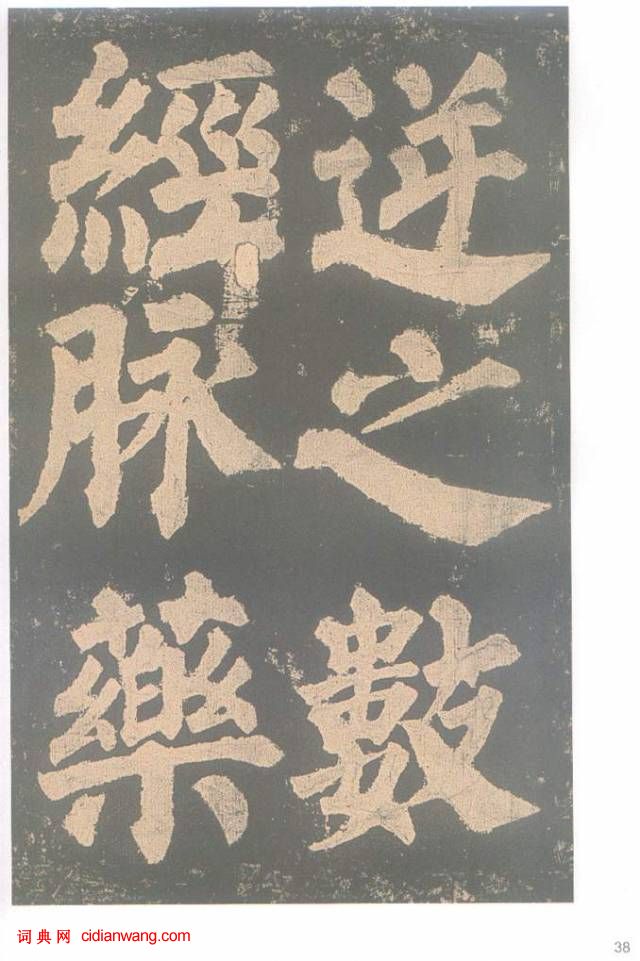 逆之數
經脉藥
词典网 cidianwang.com
38